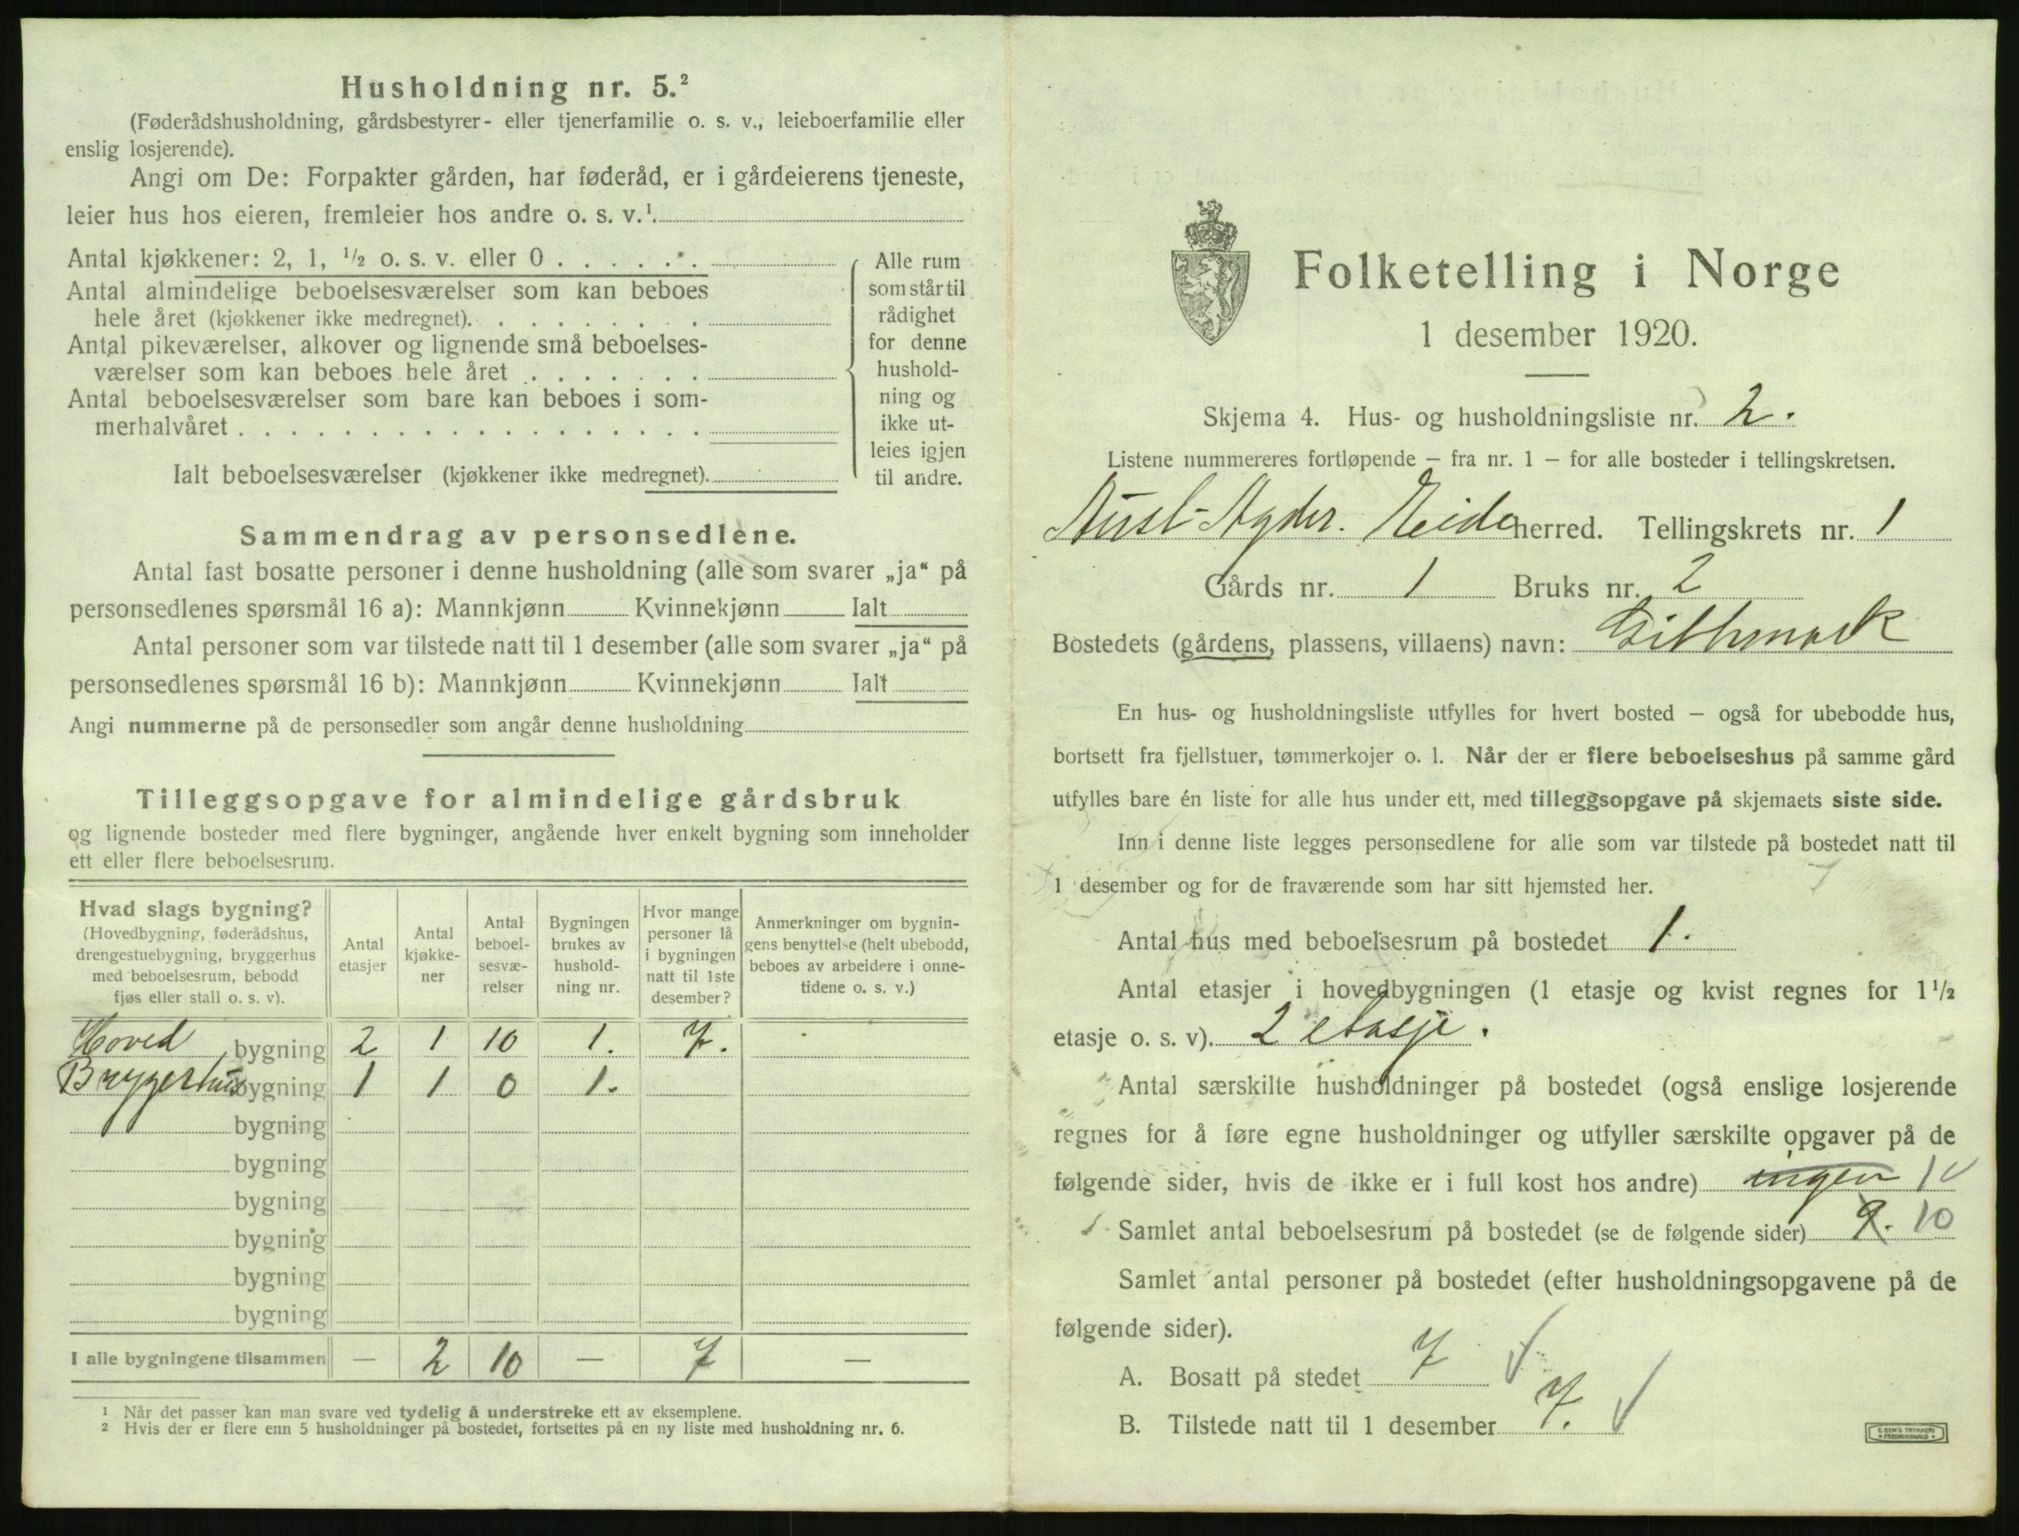 Husholdning nr. 5.²
(Føderådshusholdning, gårdsbestyrer- eller tjenerfamilie o. s. v., leieboerfamilie eller
enslig losjerende).
Angi om De: Forpakter gården, har føderåd, er i gårdeierens tjeneste,
leier hus hos eieren, fremleier hos andre o. s. v.¹.
Antal kjøkkener: 2, 1, ½ o. s. v. eller 0 . . . . . .
Antal almindelige beboelsesværelser som kan beboes
hele året (kjøkkener ikke medregnet). . . . . . . . .
Antal pikeværelser, alkover og lignende små beboelses-
værelser som kan beboes hele året . . . . . . .
Antal beboelsesværelser som bare kan beboes i som-
merhalvåret . . . . . . . . . . . . . . . . . .
Ialt beboelsesværelser (kjøkkener ikke medregnet).
Alle rum
som står til
rådighet
for denne
hushold-
ning og
ikke ut-
leies igjen
til andre.
Sammendrag av personsedlene.
Antal fast bosatte personer i denne husholdning (alle som svarer „ja“ på
personsedlenes spørsmål 16 a): Mannkjønn Kvinnekjønn Ialt
Antal personer som var tilstede natt til 1 desember (alle som svarer „ja“ på
personsedlenes spørsmål 16 b): Mannkjønn Kvinnekjønn Ialt
Angi nummerne på de personsedler som angår denne husholdning
Tilleggsopgave for almindelige gårdsbruk
og lignende bosteder med flere bygninger, angående hver enkelt bygning som inneholder
ett eller flere beboelsesrum.
Hvad slags bygning?
(Hovedbygning, føderådshus,
drengestuebygning, bryggerhus
med beboelsesrum, bebodd
fjøs eller stall o. s. v).
Antal
etasjer
Antal
kjøkke-
ner
Antal
beboel-
sesvæ-
relser
Bygningen
brukes av
hushold-
ning nr.
Hvor mange
personer lå
i bygningen
natt til 1ste
desember?
Anmerkninger om bygnin-
gens benyttelse (helt ubebodd,
beboes av arbeidere i onne-
tidene o. s. v.)
Hoved bygning 2 1 10 1. 7.
Bryggerhus bygning 1 1 0 1.
bygning
bygning
bygning
bygning
bygning
bygning
I alle bygningene tilsammen — 2 10 — 7 —
¹ Når det passer kan man svare ved tydelig å understreke ett av eksemplene.
² Hvis der er flere enn 5 husholdninger på bostedet, fortsettes på en ny liste med husholdning nr. 6.
Folketelling i Norge
1 desember 1920.
Skjema 4. Hus- og husholdningsliste nr. 2.
Listene nummereres fortløpende – fra nr. 1 – for alle bosteder i tellingskretsen.
Aust-Agder. Eide herred. Tellingskrets nr. 1
Gårds nr. 1 Bruks nr. 2
Bostedets (gårdens, plassens, villaens) navn:
En hus- og husholdningsliste utfylles for hvert bosted – også for ubebodde hus,
bortsett fra fjellstuer, tømmerkojer o. l. Når der er flere beboelseshus på samme gård
utfylles bare én liste for alle hus under ett, med tilleggsopgave på skjemaets siste side.
Inn i denne liste legges personsedlene for alle som var tilstede på bostedet natt til
1 desember og for de fraværende som har sitt hjemsted her.
Antal hus med beboelsesrum på bostedet 1.
Antal etasjer i hovedbygningen (1 etasje og kvist regnes for 1½
etasje o. s. v). 2 etasje.
Antal særskilte husholdninger på bostedet (også enslige losjerende
regnes for å føre egne husholdninger og utfyller særskilte opgaver på de
følgende sider, hvis de ikke er i full kost hos andre) ingen 1
Samlet antal beboelsesrum på bostedet (se de følgende sider) 9. 10
Samlet antal personer på bostedet (efter husholdningsopgavene på de
følgende sider).
A. Bosatt på stedet 7
B. Tilstede natt til 1 desember 7.
E. SEM'S TRYKKERI
FREDRIKSHALD